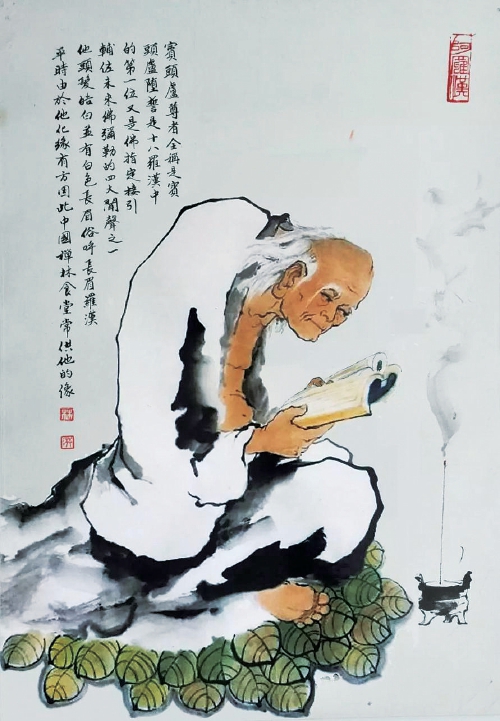 阿羅漢
賓頭盧尊者全稱是賓
頭盧墮誓是十八羅漢中
的第一位又是佛指定接引
輔佐未來佛彌勒的四大聞聲之一
他頭髮皓白並有白色長眉俗呼長眉羅漢
平時由於他化緣有方因此中國禪林食堂常供他的像